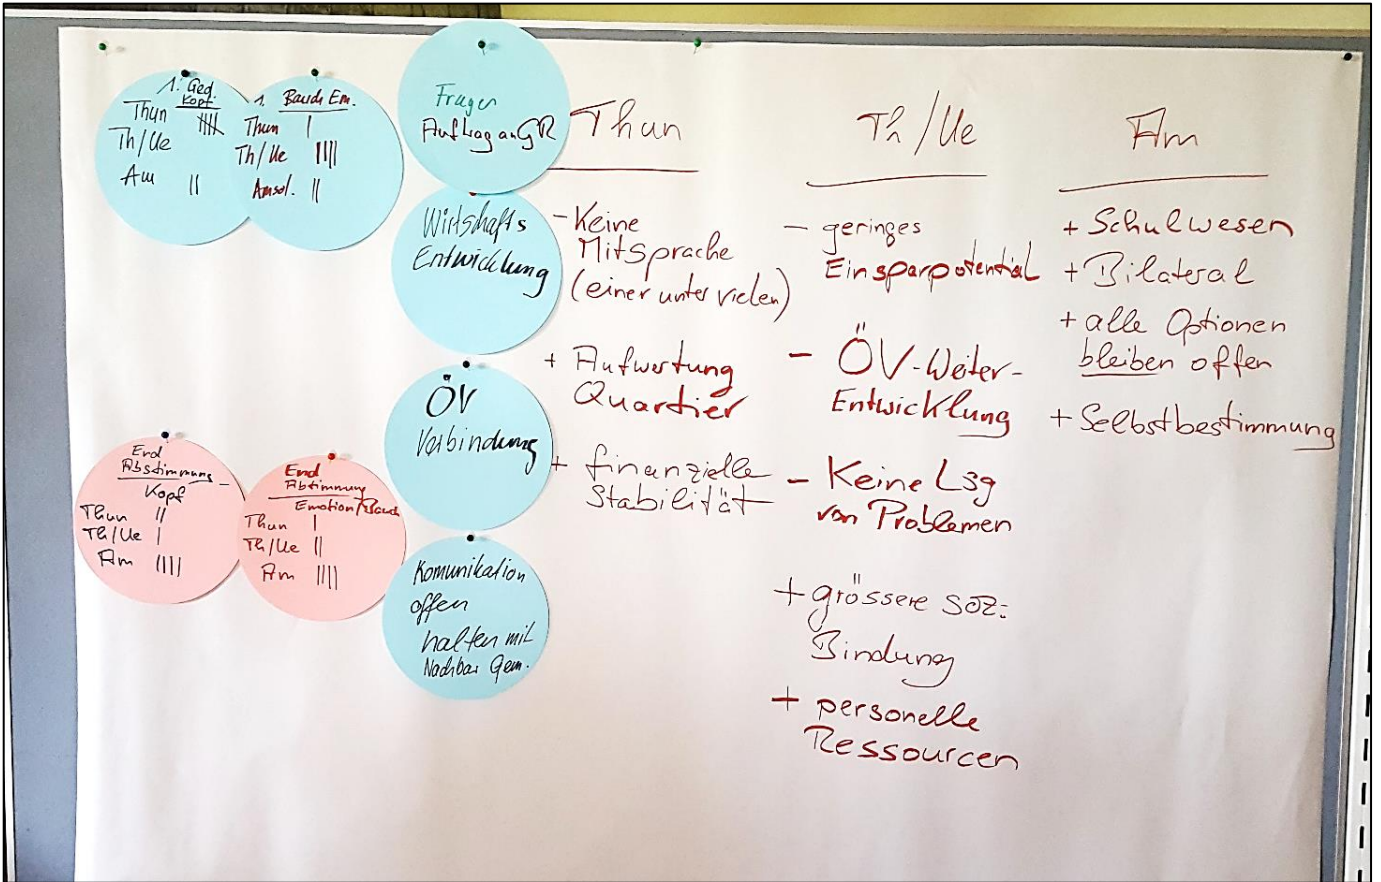 1. Ged.
Kopf
Thun 𝍸
Th/Ue
Am ||
1. Bauch Em.
Thun |
Th/Ue ||||
Amsol. ||
Fragen
Auftrag an GR
Wirtschafts
Entwicklung
ÖV
Verbindung
Komunikation
offen
halten mit
Nachbar Gem.
End
Abstimmung
Kopf
Thun ||
Th/Ue |
Am ||||
End
Abstimmung
Emotion/Bauch
Thun |
Th/Ue ||
Am ||||
Thun
- Keine
Mitsprache
(einer unter vielen)
+ Aufwertung
Quartier
+ finanzielle
Stabilität
Th/Ue
- geringes
Einsparpotential
- ÖV-Weiter-
Entwicklung
- Keine Lsg
von Problemen
+ grössere soz.
Bindung
+ personelle
Ressourcen
Am
+ Schulwesen
+ Bilateral
+ alle Optionen
bleiben offen
+ Selbstbestimmung